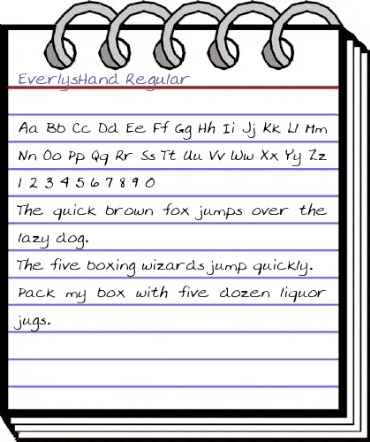 EverlysHand Regular
Aa Bb Cc Dd Ee Ff Gg Hh Ii Jj Kk Ll Mm
Nn Oo Pp Qq Rr Ss Tt Uu Vv Ww Xx Yy Zz
1 2 3 4 5 6 7 8 9 0
The quick brown fox jumps over the
lazy dog.
The five boxing wizards jump quickly.
Pack my box with five dozen liquor
jugs.